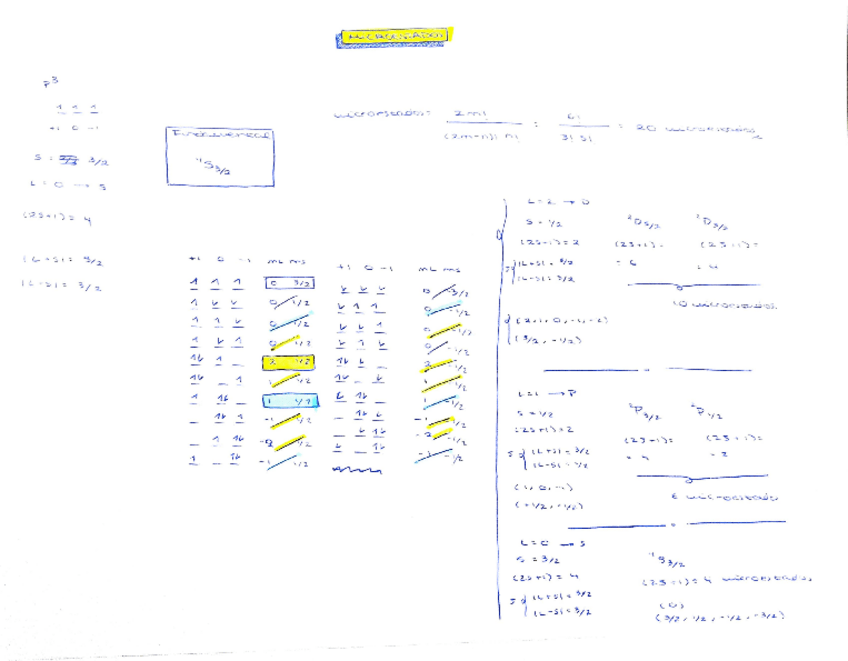 MICROESTADOS
p³
1 1 1
+1 0 -1
S = 3/2
L = 0 → S
(2S+1) = 4
|L+S| = 3/2
|L-S| = 3/2
Fundamental
⁴S3/2
microestados: 2m! / (2m-n)! n! = 6! / 3! 3! = 20 microestados
+1 0 -1 mL ms
0 3/2
0 1/2
0 1/2
0 1/2
2 1/2
1 1/2
1 1/2
-1 1/2
-2 1/2
-1 1/2
+1 0 -1 mL ms
0 -3/2
0 -1/2
0 -1/2
0 -1/2
2 -1/2
1 -1/2
1 -1/2
-1 -1/2
-2 -1/2
-1 -1/2
L = 2 → D
S = 1/2 ²D5/2 ²D3/2
(2S+1) = 2 (2J+1) = 6 (2J+1) = 4
J |L+S| = 5/2
|L-S| = 3/2
10 microestados
(2, 1, 0, -1, -2)
(1/2, -1/2)
L = 1 → P
S = 1/2 ²P3/2 ²P1/2
(2S+1) = 2 (2J+1) = 4 (2J+1) = 2
J |L+S| = 3/2
|L-S| = 1/2
(1, 0, -1)
(+1/2, -1/2)
6 microestados
L = 0 → S
S = 3/2 ⁴S3/2
(2S+1) = 4 (2J+1) = 4 microestados
J |L+S| = 3/2
|L-S| = 3/2
(0)
(3/2, 1/2, -1/2, -3/2)